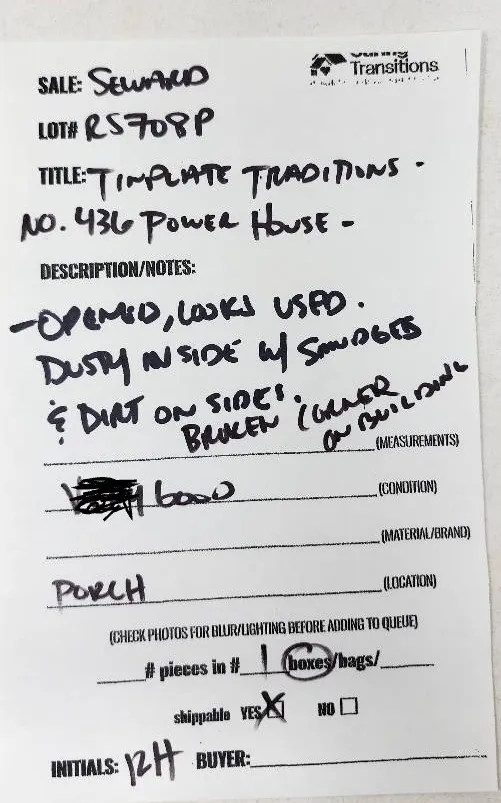 Transitions
SALE: SEWARD
LOT# RS708P
TITLE: TINPLATE TRADITIONS -
NO. 436 POWER HOUSE -
DESCRIPTION/NOTES:
- OPENED, LOOKS USED.
DUSTY INSIDE W/ SMUDGES
& DIRT ON SIDES.
BROKEN CORNER
ON BUILDING
(MEASUREMENTS)
GOOD (CONDITION)
(MATERIAL/BRAND)
PORCH (LOCATION)
(CHECK PHOTOS FOR BLUR/LIGHTING BEFORE ADDING TO QUEUE)
____# pieces in #_1_ boxes/bags/____
shippable YES☒ NO ☐
INITIALS: RH BUYER:____